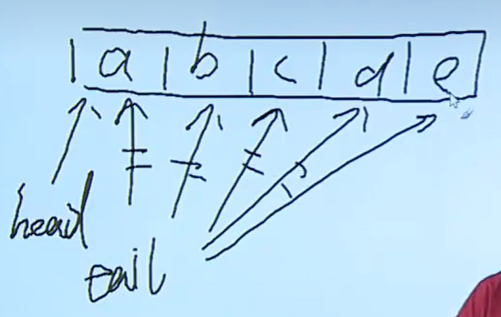 a b c d e
head
tail